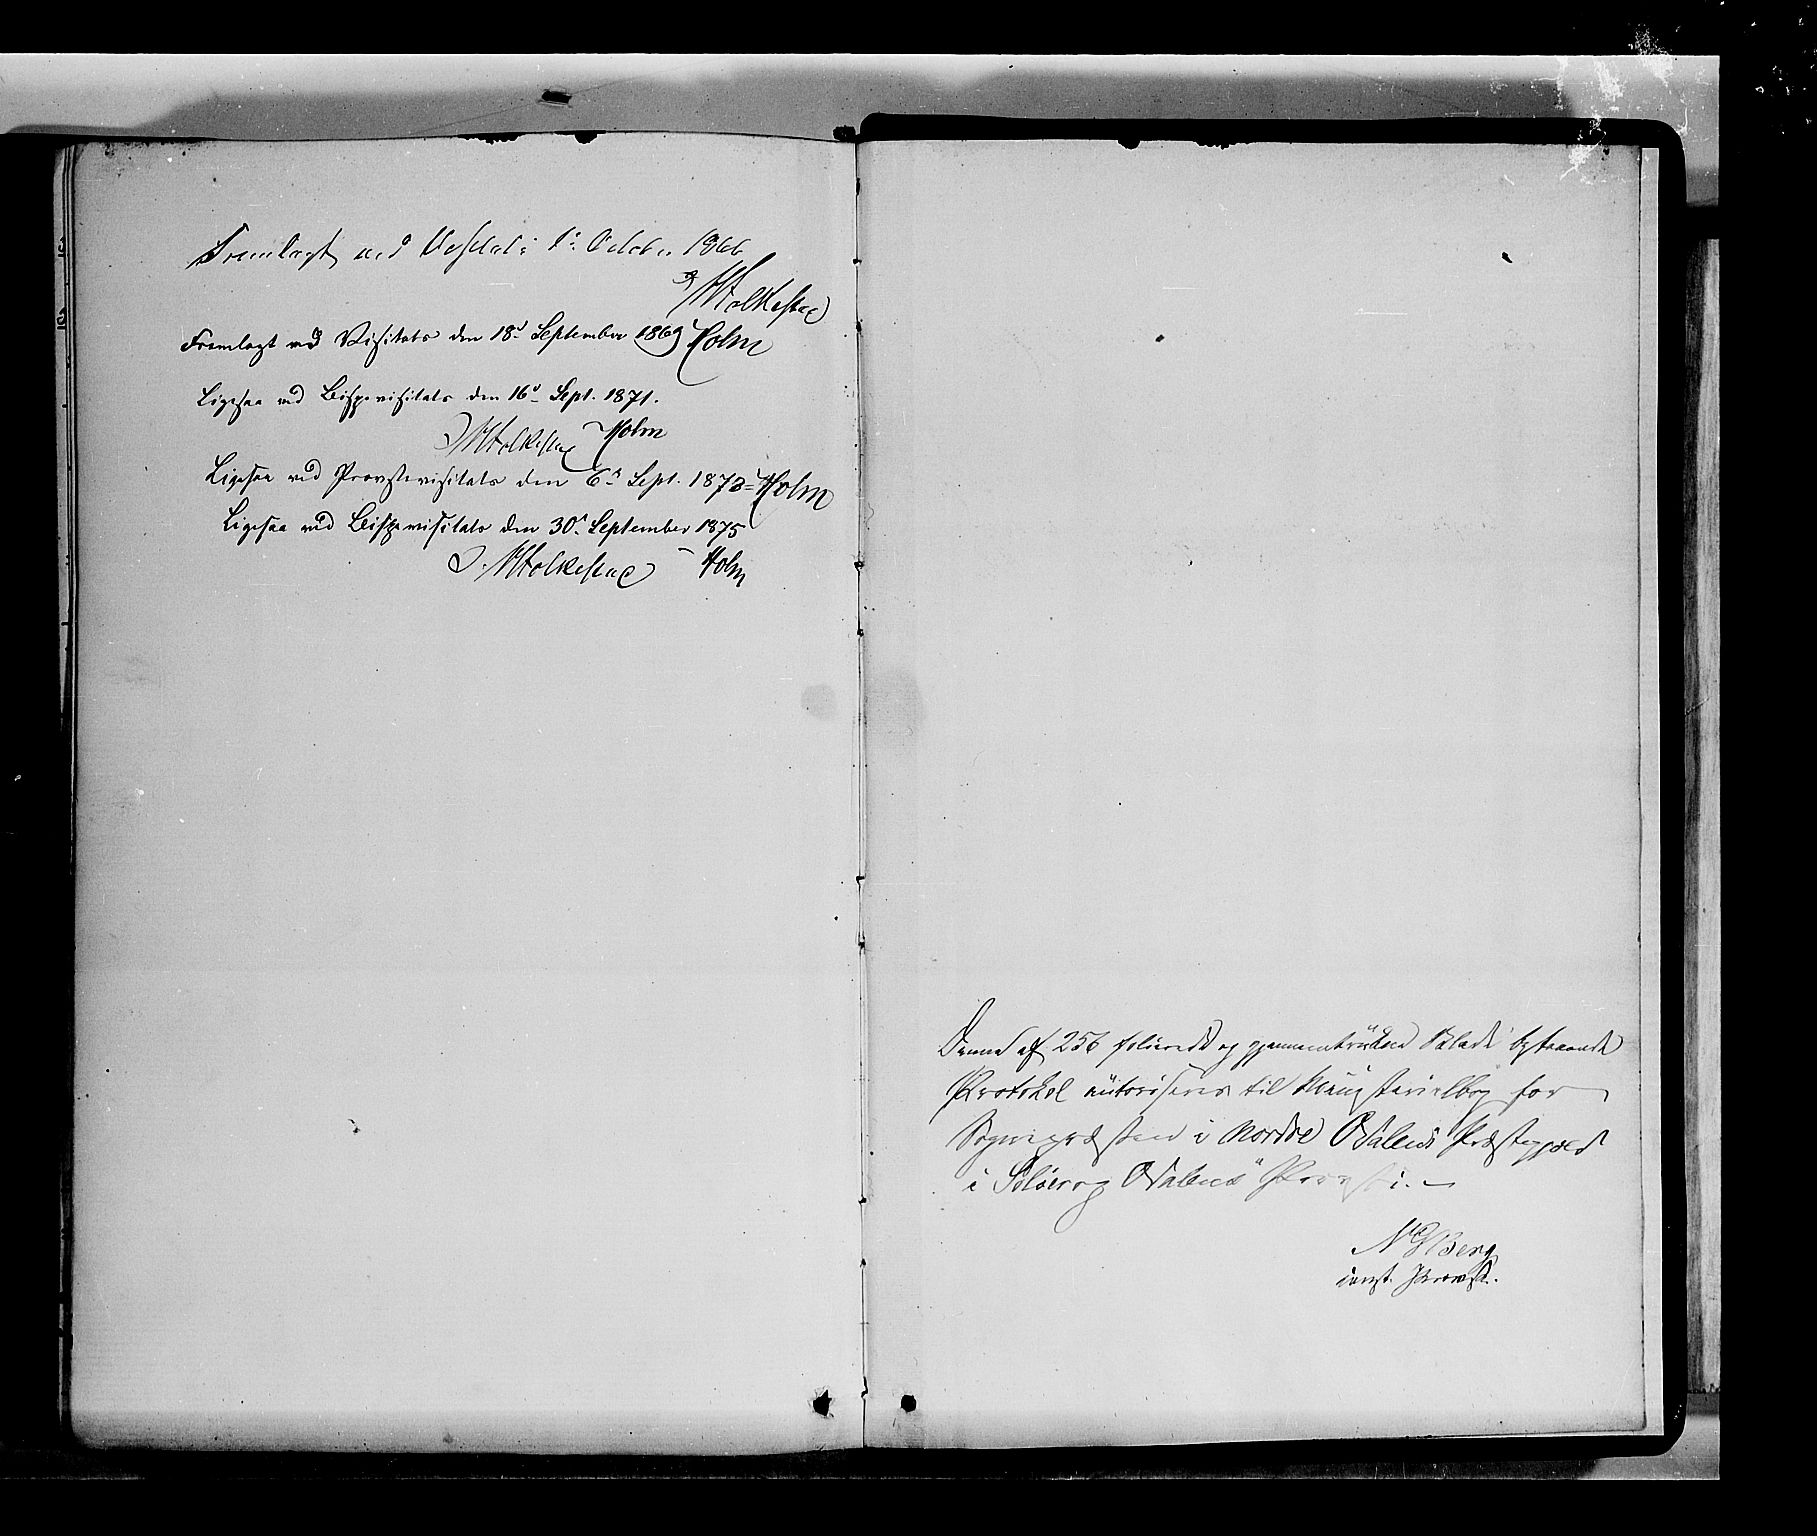 Fremlagt ved Visitats 1ste October 1866
Folkestad
Fremlagt ved Visitats den 18d September 1869 Holm
Ligesaa ved Bispevisitats den 16d Sept. 1871.
Folkestad Holm
Ligesaa ved Provstevisitats den 6d Sept. 1873 = Holm
Ligesaa ved Bispevisitats den 30d September 1875
Folkestad – Holm
Denne af 256 folierede og gjennemtrukne Blade bestaaende
Protokol autoriseres til Ministerialbog for
Sognepræsten i Nordre Odalens Præstegjæld
i Solør og Odalens Provsti. –
Berg
const. Provst.